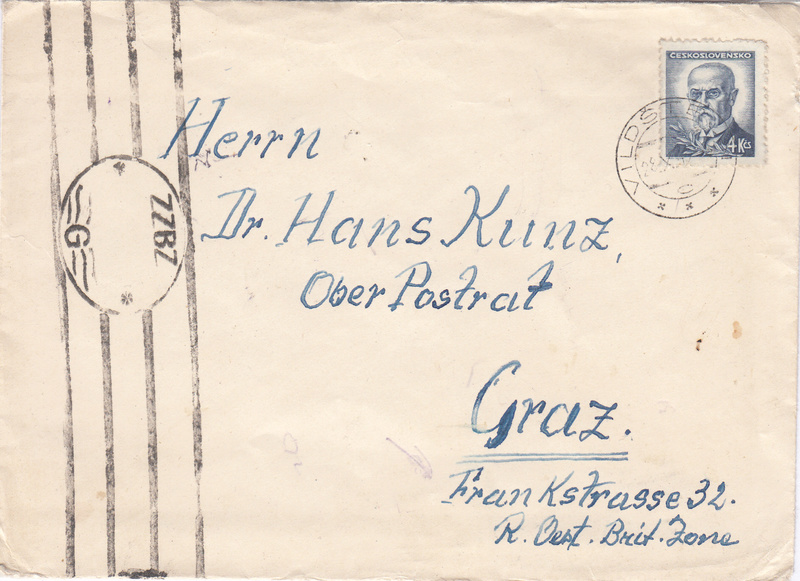 ČESKOSLOVENSKO
4 Kčs
VILDŠTE
Herrn
Dr. Hans Kunz,
Ober Postrat
Graz.
Frankstrasse 32.
R. Oest. Brit. Zone
ZZBZ
G